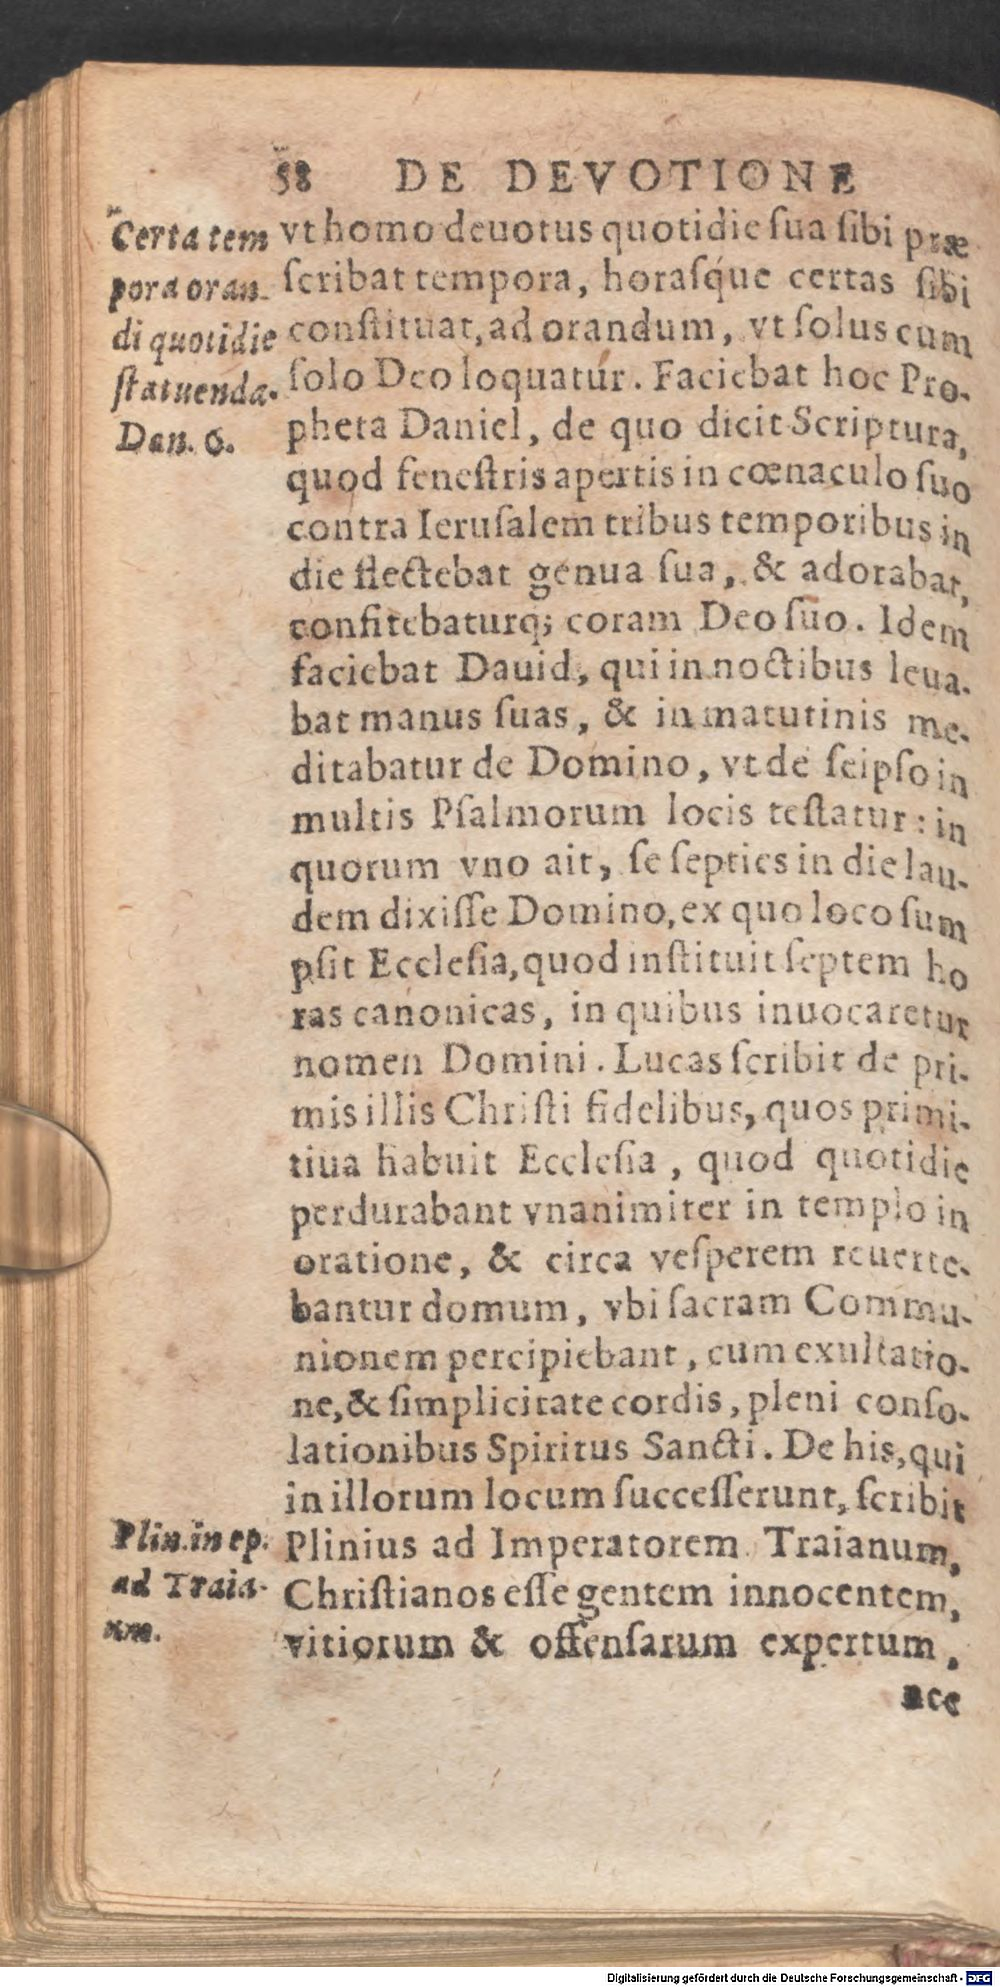 58 DE DEVOTIONE
Certa tem
pora oran-
di quotidie
ſtatuenda.
Dan. 6.
vt homo deuotus quotidie ſua ſibi præ
ſcribat tempora, horaſq́ue certas ſibi
conſtituat, ad orandum, vt ſolus cum
ſolo Deo loquatur. Faciebat hoc Pro-
pheta Daniel, de quo dicit Scriptura,
quod feneſtris apertis in cœnaculo ſuo
contra Ieruſalem tribus temporibus in
die flectebat genua ſua, & adorabat,
confitebaturq; coram Deo ſuo. Idem
faciebat Dauid, qui in noctibus leua-
bat manus ſuas, & in matutinis me-
ditabatur de Domino, vt de ſeipſo in
multis Pſalmorum locis teſtatur: in
quorum vno ait, ſe ſepties in die lau-
dem dixiſſe Domino, ex quo loco ſum
pſit Eccleſia, quod inſtituit ſeptem ho
ras canonicas, in quibus inuocaretur
nomen Domini. Lucas ſcribit de pri-
mis illis Chriſti fidelibus, quos primi-
tiua habuit Eccleſia, quod quotidie
perdurabant vnanimiter in templo in
oratione, & circa veſperem reuerte-
bantur domum, vbi ſacram Commu-
nionem percipiebant, cum exultatio-
ne, & ſimplicitate cordis, pleni conſo-
lationibus Spiritus Sancti. De his, qui
in illorum locum ſucceſſerunt, ſcribit
Plinius ad Imperatorem Traianum,
Chriſtianos eſſe gentem innocentem,
vitiorum & offenſarum expertum,
Plin. in ep.
ad Traia-
num.
nec
Digitalisierung gefördert durch die Deutsche Forschungsgemeinschaft - DFG